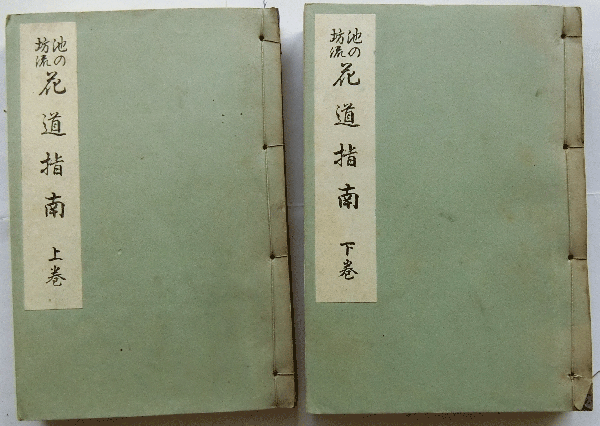 池の坊流
花道指南 上巻
池の坊流
花道指南 下巻